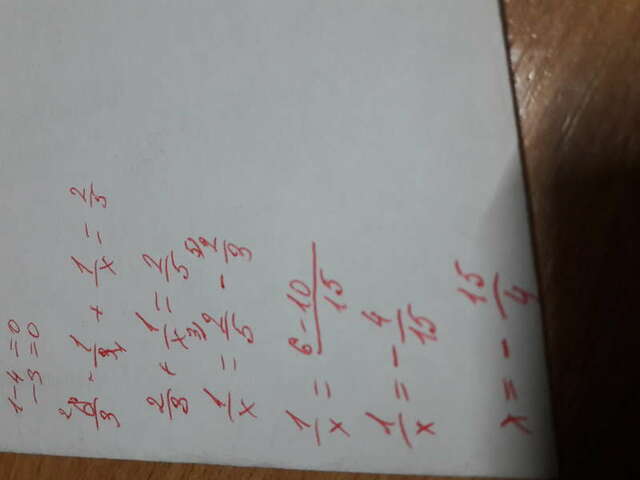 1-4 = 0
-3 = 0
6/3 · 1/3 + 1/x = 2/5
2/3 + 1/x = 2/5
1/x = 2/5 - 2/3
1/x = 6-10/15
1/x = - 4/15
x = - 15/4